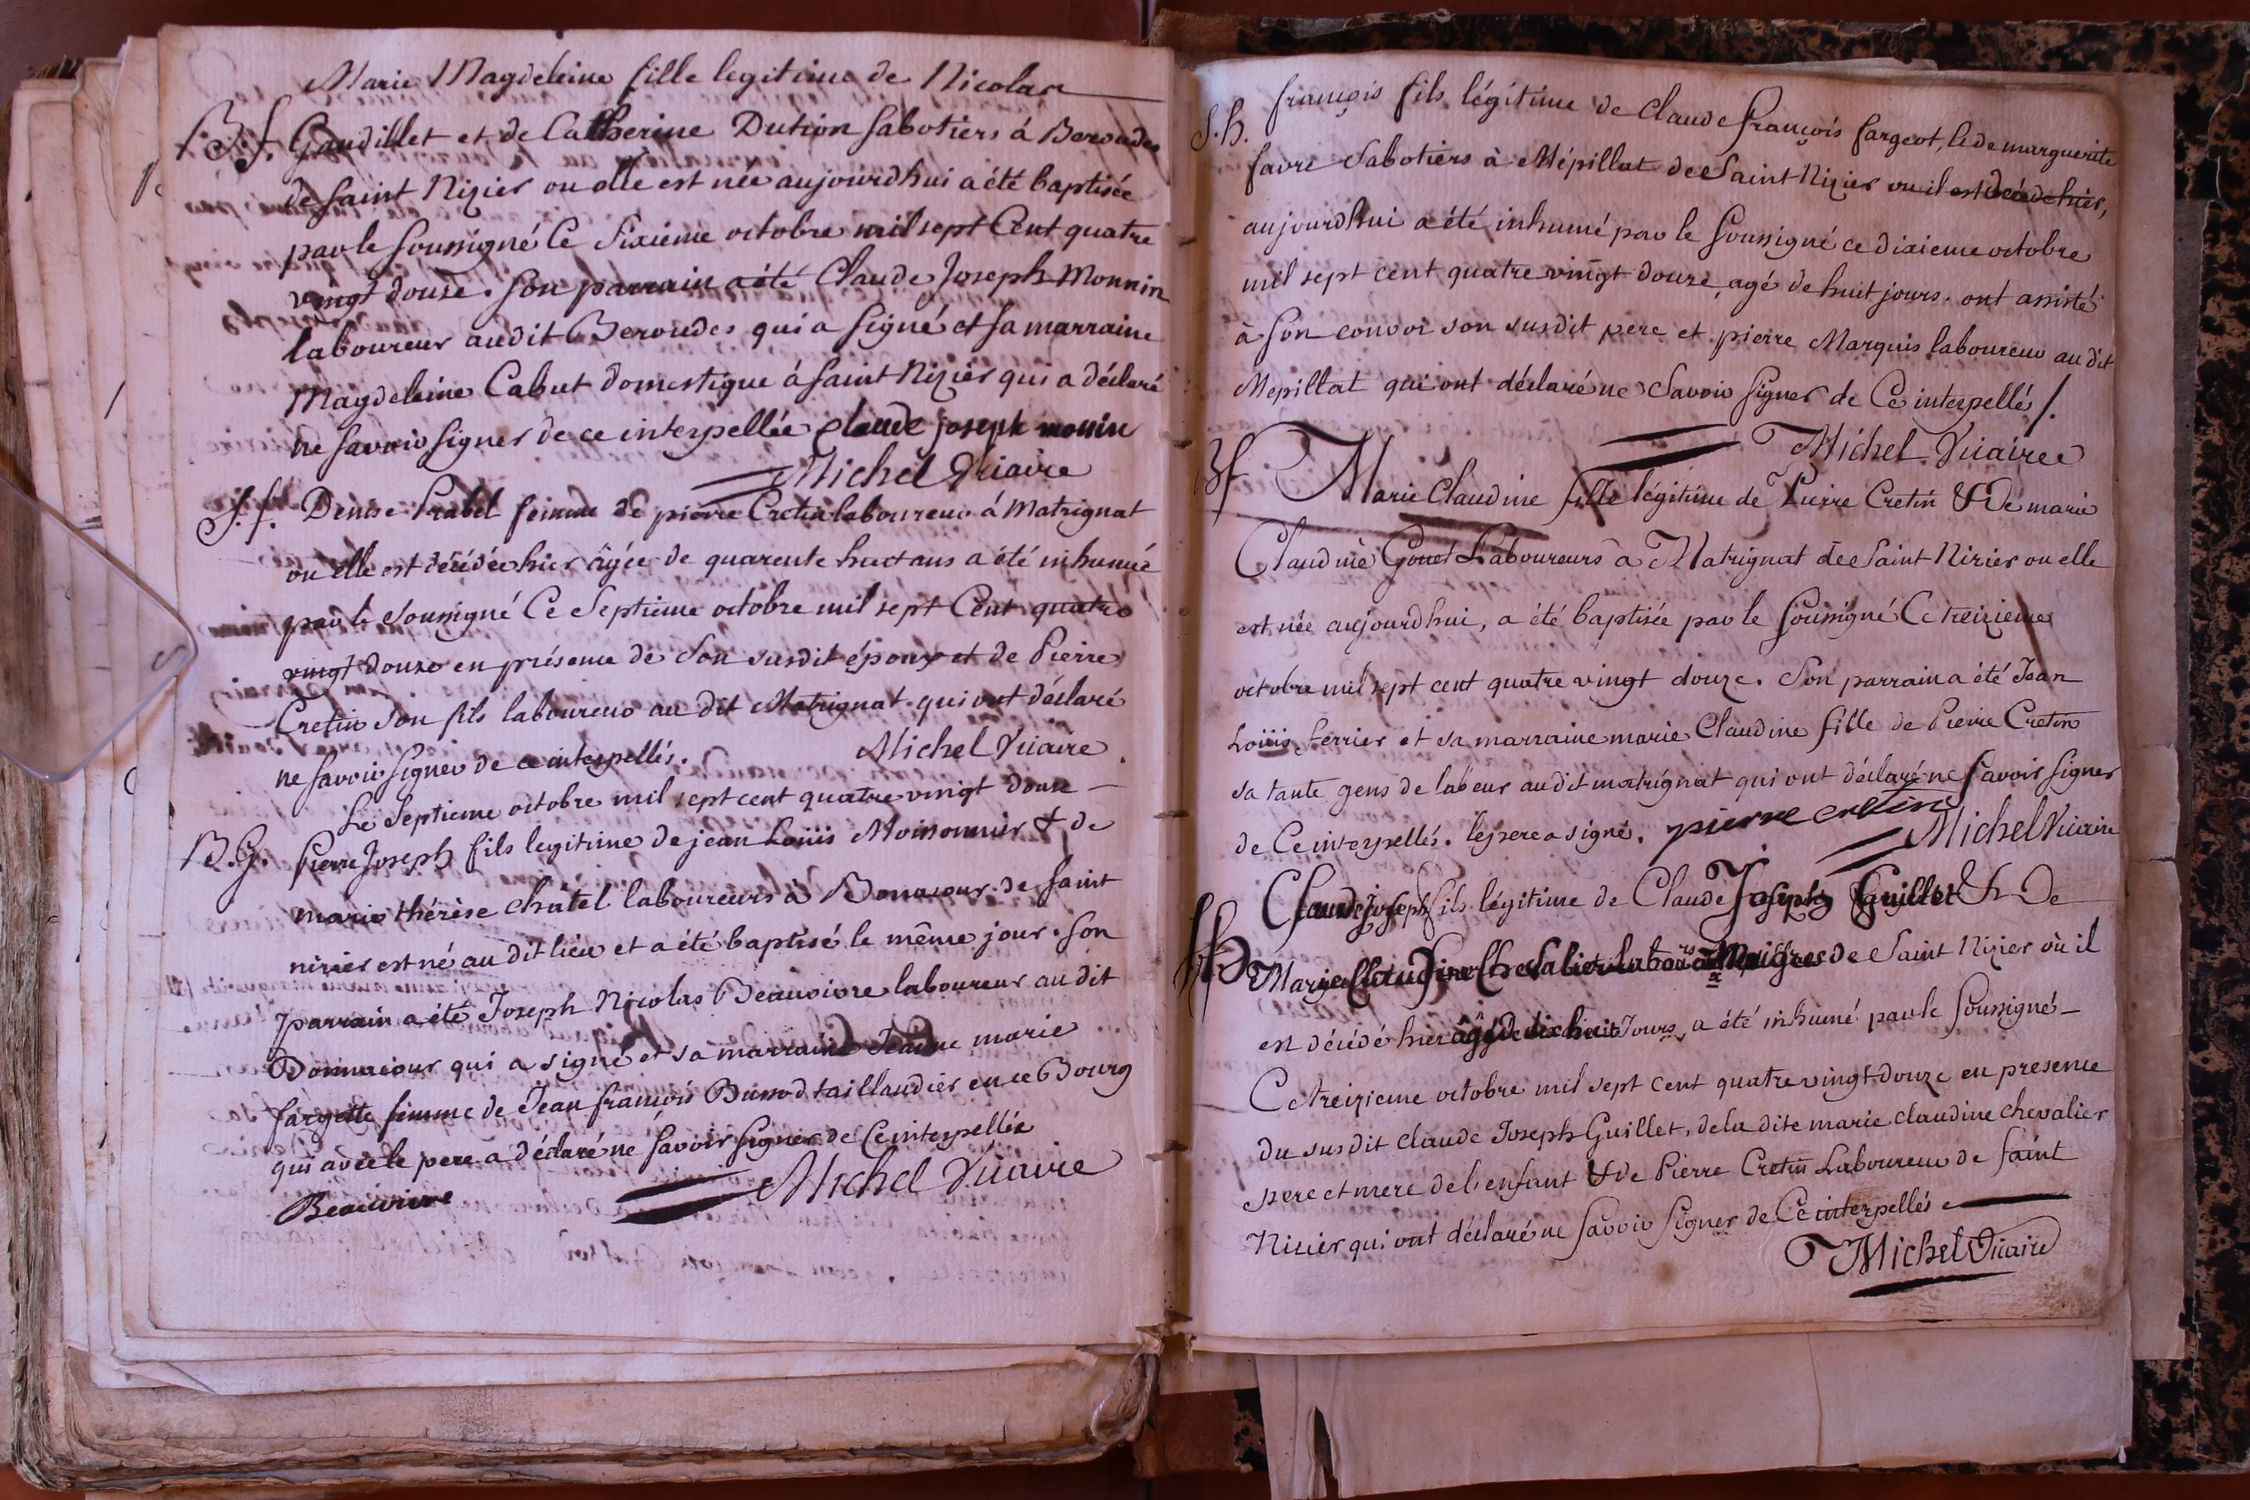 Marie Magdeleine fille legitime de Nicolas
B.f. Gaudillet et de Catherine Dution sabotiers à Beroudes
de saint Nizier ou elle est née aujourdhui a été baptisée
par le soussigné Ce sixieme octobre mil sept Cent quatre
vingt douse. son parrain a été Claude Joseph Monnin
laboureur audit Beroudes qui a signé et sa marraine
Magdeleine Cabut domestique à saint Nizier qui a déclaré
ne savoir signer de ce interpellée claude joseph monin
Michel Vicaire
S.f. Denise Prabel femme de pierre Cretin laboureur à Matrignat
ou elle est décédée hier âgée de quarente huit ans a été inhumé
par le soussigné Ce septieme octobre mil sept Cent quatre
vingt douze en présence de son susdit époux et de Pierre
Cretin son fils laboureur au dit Matrignat qui ont déclaré
ne savoir signer de ce interpellés. Michel Vicaire
Le septieme octobre mil sept cent quatre vingt douze
B.G. Pierre Joseph fils legitime de jean Loüis Moissonnier & de
marie thérèse châtel laboureurs à Bonnacour de saint
nizier est né au dit lieu et a été baptisé le même jour. son
parrain a été Joseph Nicolas Beauvivre laboureur au dit
Bonnacour qui a signé et sa marraine Jeanne marie
fargette femme de Jean françois Bussod taillandier en ce Bourg
qui avec le pere a déclaré ne savoir signer de Ce interpellée
Beauvivre Michel Vicaire
S.h. françois fils légitime de Claude françois fargeot, & de marguerite
favre Sabotiers à Mépillat de Saint Nizier ou il est décédé hier,
aujourdhui a été inhumé par le soussigné ce dixieme octobre
mil sept cent quatre vingt douze, agé de huit jours. ont assisté
à son convoi son susdit pere et pierre Marquis laboureur au dit
Mepillat qui ont déclaré ne Savoir signer de Ce interpellés /.
Michel Vicaire
Bf Marie Claudine fille légitime de Pierre Cretin & De marie
Claudine Gouet Laboureurs a Matrignat de Saint Nizier ou elle
est née aujourdhui, a été baptisée par le soussigné Ce treizieme
octobre mil sept cent quatre vingt douze. Son parrain a été Jean
Loüis Ferrier et sa marraine marie Claudine fille de Pierre Cretin
sa tante gens de labeur audit matrignat qui ont déclaré ne savoir signer
de Ce interpellés. le pere a signé. pierre cretin Michel Vicaire
Claude Joseph fils légitime de Claude Joseph Guillet & De
Marie Claudine Chevalier Labours de Saint Nizier où il
est décédé hier âgé de dix huit Jours, a été inhumé par le soussigné
Ce treizieme octobre mil sept cent quatre vingt-douze en presence
du susdit Claude Joseph Guillet, de la dite marie claudine chevalier
pere et mere de l'enfant & de Pierre Cretin Laboureur de saint
Nizier qui ont déclaré ne savoir signer de Ce interpellés
Michel Vicaire